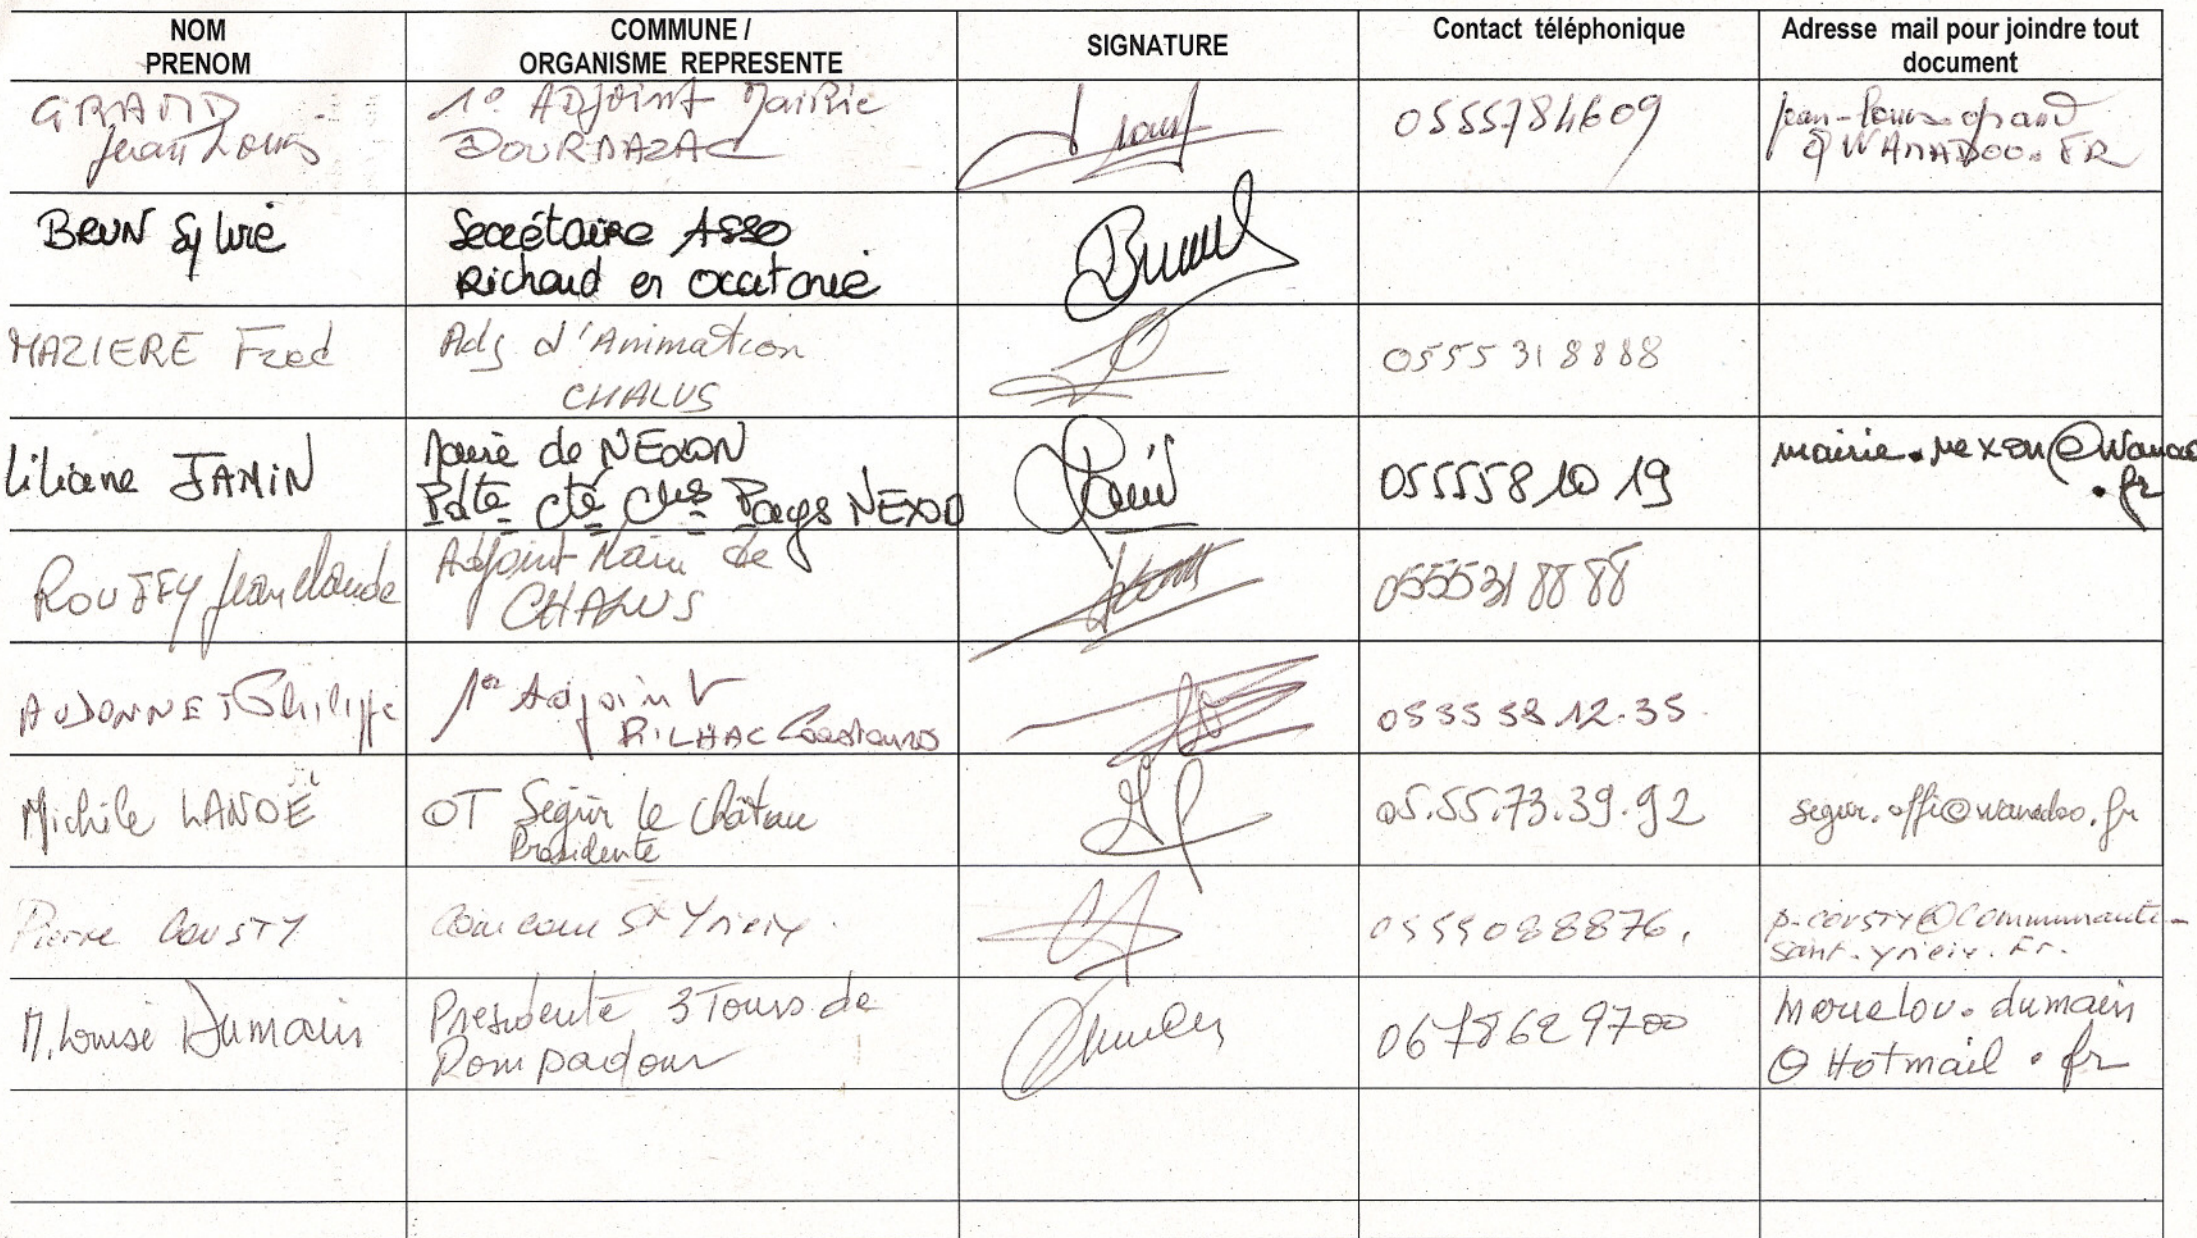 NOM
PRENOM
COMMUNE /
ORGANISME REPRESENTE
SIGNATURE
Contact téléphonique
Adresse mail pour joindre tout
document
GRAND
Jean Louis
1º ADjoint Mairie
DOURNAZAC
0555784609
jean-louis.grand
@WANADOO.FR
BRUN Sylvie
Secrétaire ASSO
Richard en Occitanie
MAZIERE Fred
Adj d'Animation
CHALUS
0555 318888
Liliane JAMIN
Maire de NEXON
Pdte cté Cnes Pays NEXON
055558 10 19
mairie.nexon@wanadoo
.fr
ROUJEY Jean Claude
Adjoint Maire de
CHALUS
055531 88 88
Philippe
1er Adjoint
RILHAC Lastours
0555 58.12.35
Michèle LANOË
OT Ségur le Château
Présidente
05.55.73.39.92
segur.offi@wanadoo.fr
Pierre COUSTY
Com com St Yrieix.
0555088876.
p-cousty@communaute-
saint-yrieix.Fr.
M.Louise Dumain
Présidente 3 Tours de
Pompadour
0678629700
marielou.dumain
@Hotmail.fr